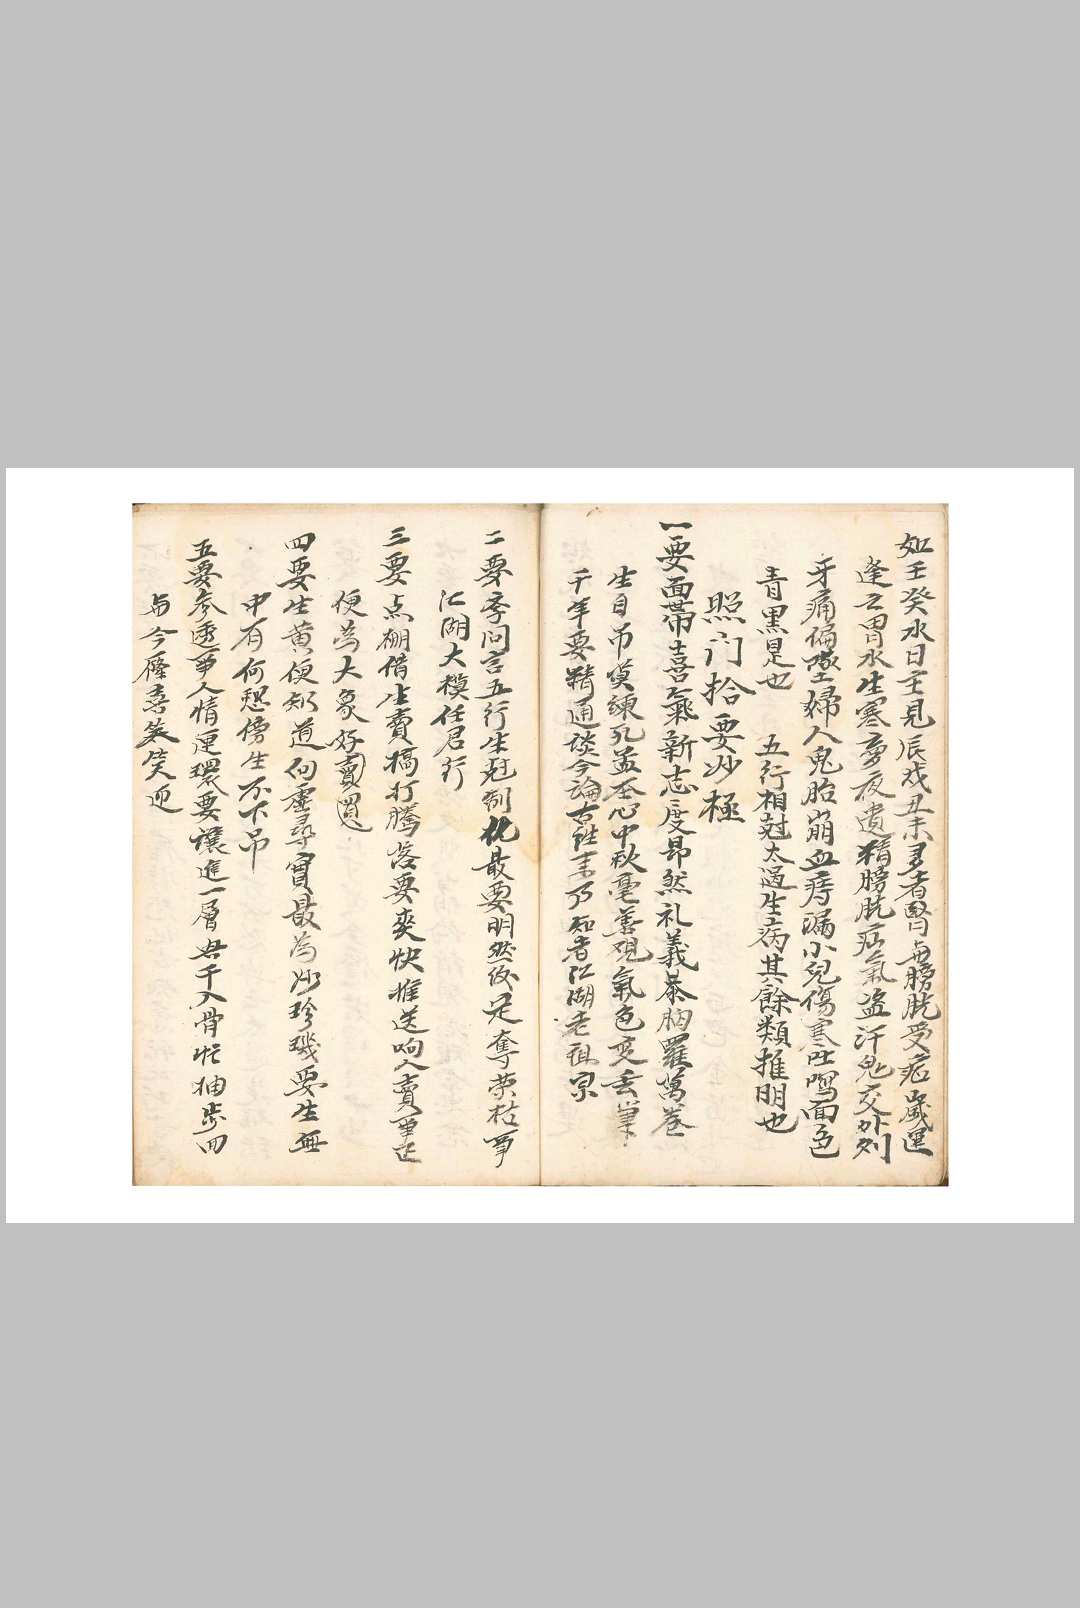 如壬癸水日主見辰戌丑未多者腎與膀胱受症歲運
逢之胃水生寒夢夜遺精膀胱疝氣盗汗鬼交外列
牙痛偏墜婦人鬼胎崩血痔漏小兒傷寒吐瀉面色
青黑是也 五行相尅太過生病其餘類推明也
照门拾要妙極
一要面帶喜氣新志度昂然礼義恭胸羅萬卷
生日吊莫練孔孟在心中秋毫善覌氣色变丢筆
千年要精通谈今論古往来乃知者江湖老祖宗
二要季问言五行生尅制化最要明然後足奪荣枯事
江湖大模任君行
三要点棚借生賣搞打騰落要爽快推送响人賣筆送
便為大象好賣買
四要生黄便知道向虚尋實最為妙珍璣要生無
中有何愁傍生不下吊
五要参透事人情連環要讓進一層若干入骨忙抽步回
与今雁喜笑笑迎